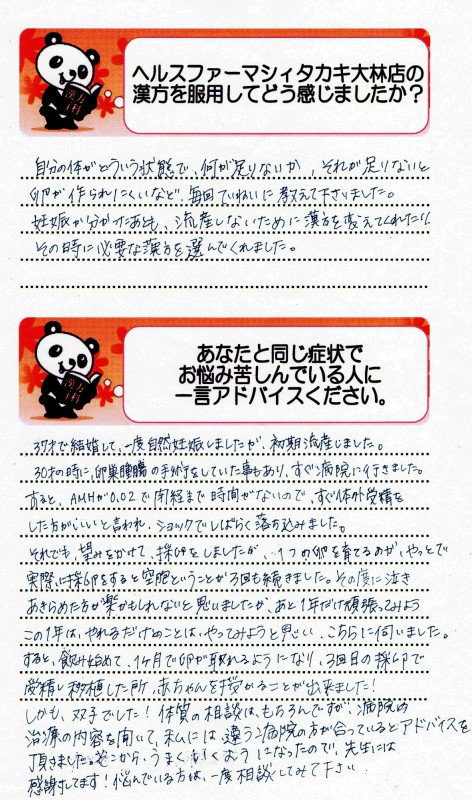 ヘルスファーマシィタカキ大林店の
漢方を服用してどう感じましたか？
自分の体がどういう状態で、何が足りないか、それが足りないと
卵が作られにくいなど、毎回ていねいに教えて下さいました。
妊娠が分かったあとも、流産しないために漢方を変えてくれたり、
その時に必要な漢方を選んでくれました。
あなたと同じ症状で
お悩み苦しんでいる人に
一言アドバイスください。
37才で結婚して、一度自然妊娠しましたが、初期流産しました。
30才の時に、卵巣腫瘍の手術をしていた事もあり、すぐ病院に行きました。
すると、AMHが0.02で閉経まで時間がないので、すぐ体外受精を
した方がいいと言われ、ショックでしばらく落ち込みました。
それでも、望みをかけて、採卵をしましたが、1つの卵を育てるのが、やっとで
実際に採卵をすると空胞ということが3回も続きました。その度に泣き
あきらめた方が楽かもしれないと思いましたが、あと1年だけ頑張ってみよう
この1年は、やれるだけのことは、やってみようと思い、こちらに伺いました。
すると、飲み始めて、1ヶ月で卵が取れるようになり、3回目の採卵で
受精し移植した所、赤ちゃんを授かることが出来ました！
しかも、双子でした！体質の相談は、もちろんですが、病院の
治療の内容を聞いて、私には違う病院の方が合っているとアドバイスを
頂きました。そこから、うまくいくようになったので、先生には
感謝してます！悩んでいる方は、一度相談してみて下さい。